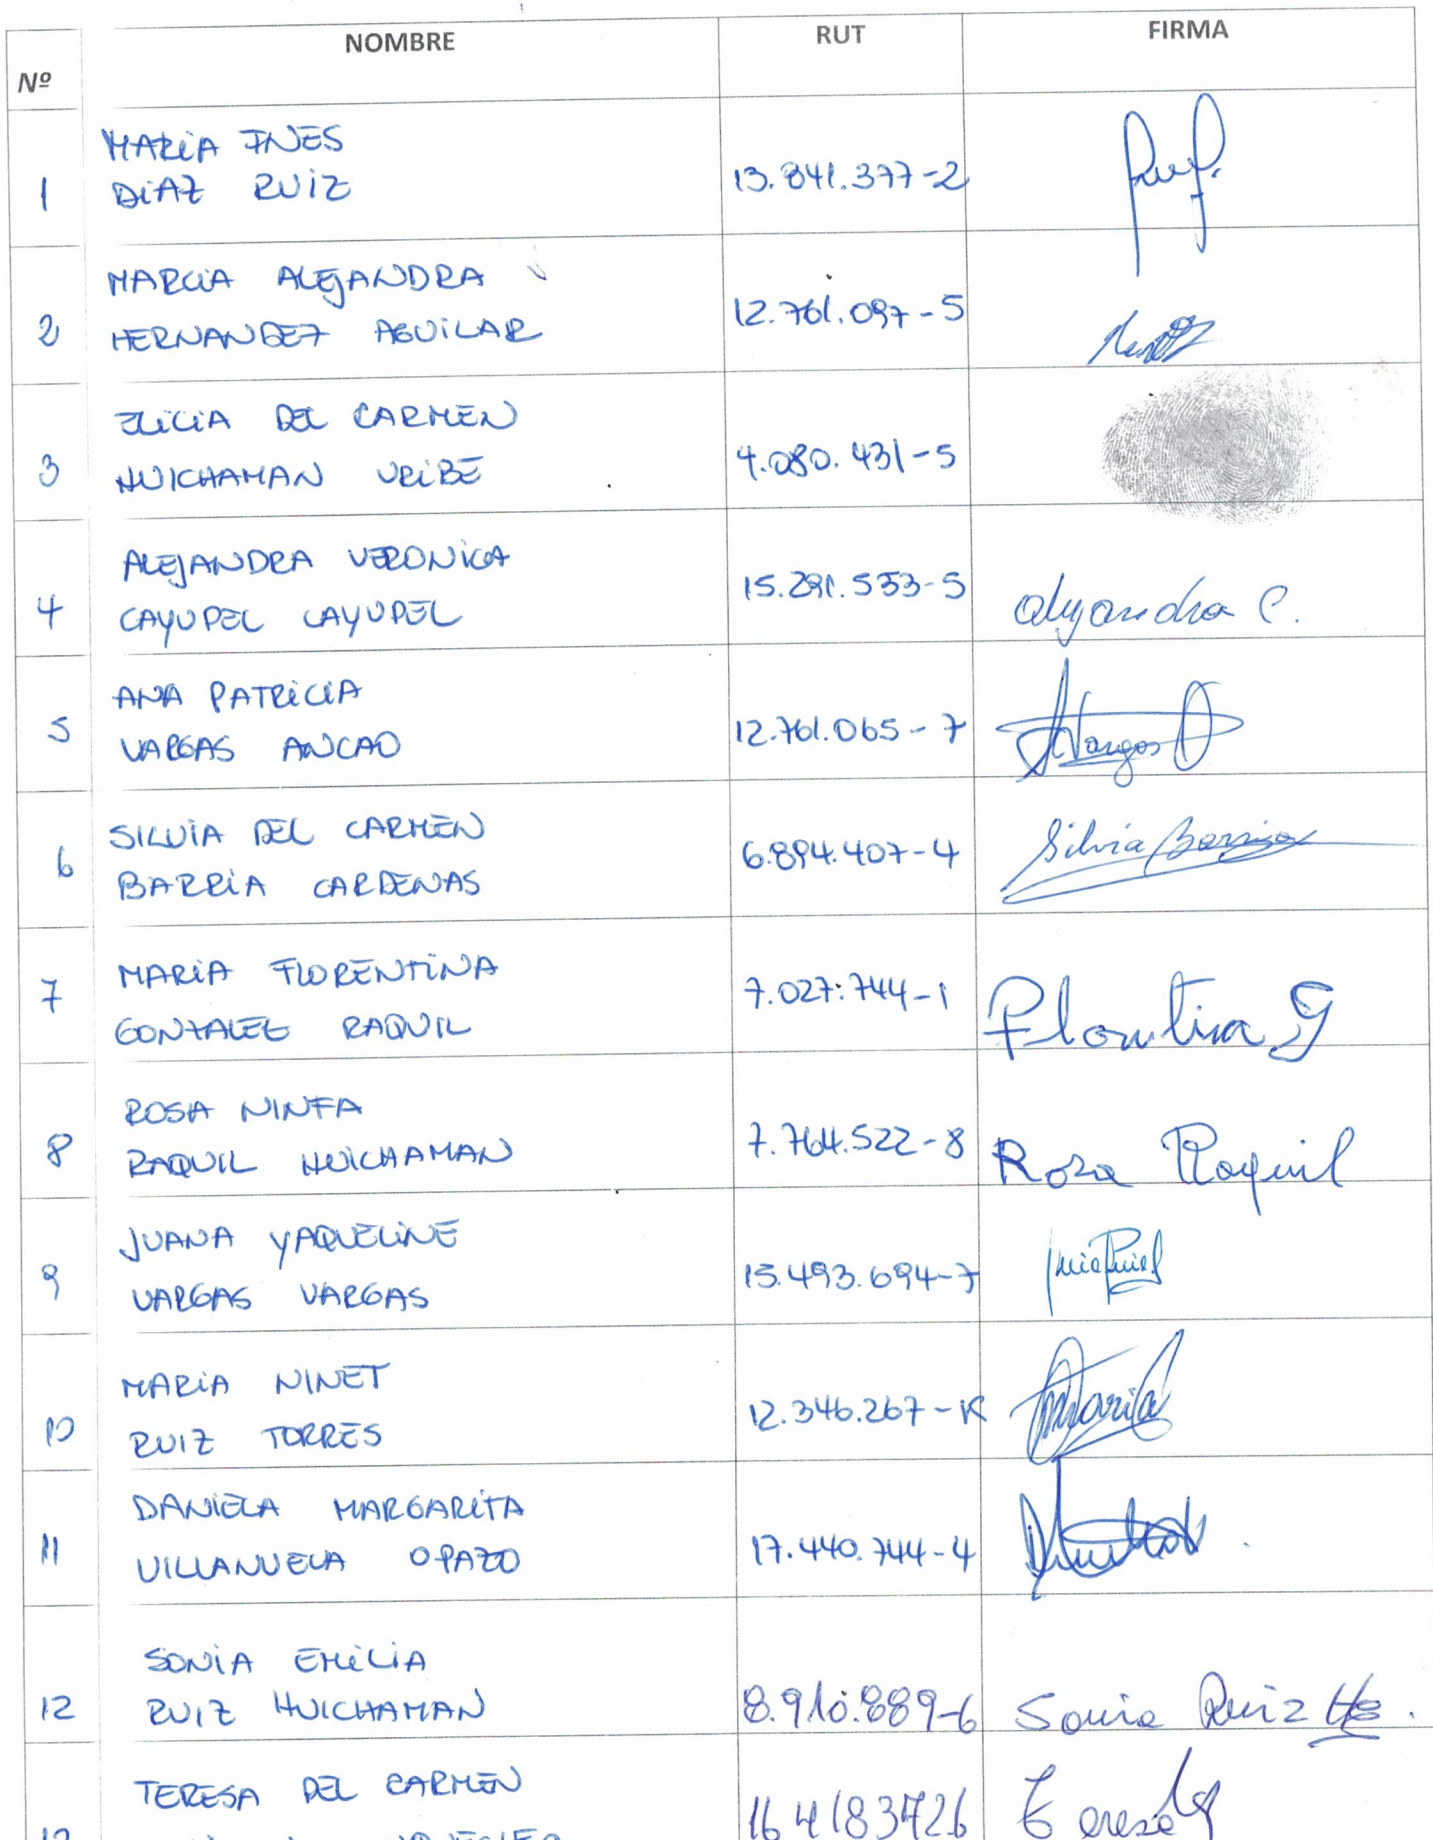 NOMBRE RUT FIRMA
Nº
MARIA INES
1 DIAZ RUIZ 13.841.377-2
MARCIA ALEJANDRA
2 HERNANDEZ AGUILAR 12.761.097-5
ELICIA DEL CARMEN
3 HUICHAMAN URIBE 4.080.431-5
ALEJANDRA VERONICA
4 CAYUPEL CAYUPEL 15.281.553-5 Alejandra C.
ANA PATRICIA
5 VARGAS ANCAO 12.761.065-7 AVargas
SILVIA DEL CARMEN
6 BARRIA CARDENAS 6.894.407-4 Silvia Barria
MARIA FLORENTINA
7 GONZALEZ RAQUIL 7.027.744-1 Florentina G
ROSA NINFA
8 RAQUIL HUICHAMAN 7.764.522-8 Rosa Raquil
JUANA YAQUELINE
9 VARGAS VARGAS 15.493.694-7
MARIA NINET
10 RUIZ TORRES 12.346.267-K Maria
DANIELA MARGARITA
11 VILLANUEVA OPAZO 17.440.744-4
SONIA EMILIA
12 RUIZ HUICHAMAN 8.910.889-6 Sonia Ruiz H.
TERESA DEL CARMEN
164183726 Teresa